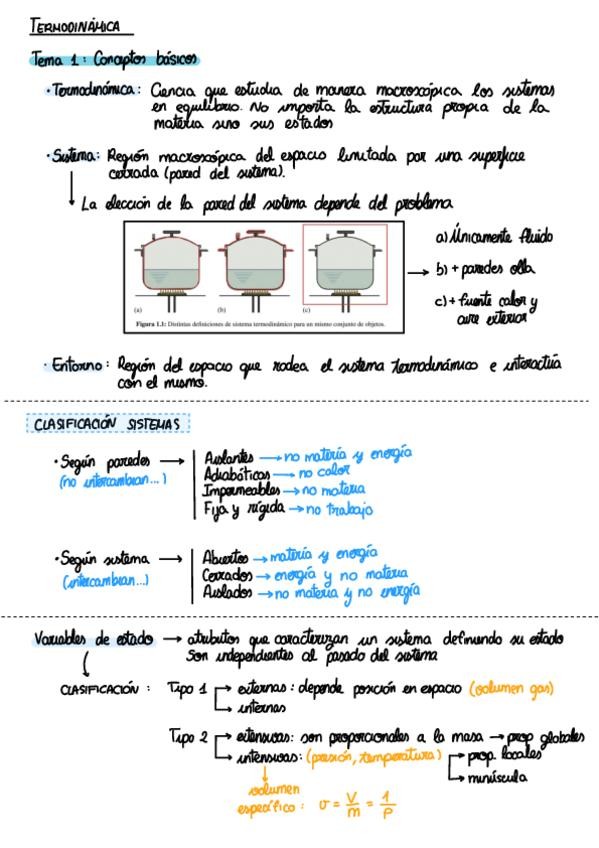 TERMODINÁMICA
Tema 1: Conceptos básicos
· Termodinámica: Ciencia que estudia de manera macroscópica los sistemas
en equilibrio. No importa la estructura propia de la
materia sino sus estados
· Sistema: Región macroscópica del espacio limitada por una superficie
cerrada (pared del sistema).
↓ La elección de la pared del sistema depende del problema
a) Únicamente fluido
→ b) + paredes olla
c) + fuente calor y
aire exterior
(a) (b) (c)
Figura 1.1: Distintas definiciones de sistema termodinámico para un mismo conjunto de objetos.
· Entorno: Región del espacio que rodea el sistema termodinámico e interactúa
con el mismo.
CLASIFICACIÓN SISTEMAS
· Según paredes → Aislantes → no materia y energía
(no intercambian...) Adiabáticas → no calor
Impermeables → no materia
Fija y rígida → no trabajo
· Según sistema → Abiertos → materia y energía
(intercambian...) Cerrados → energía y no materia
Aislados → no materia y no energía
Variables de estado → atributos que caracterizan un sistema definiendo su estado
Son independientes al pasado del sistema
CLASIFICACIÓN: Tipo 1 → externas: depende posición en espacio (volumen gas)
→ internas
Tipo 2 → extensivas: son proporcionales a la masa → prop globales
→ intensivas: (presión, temperatura) → prop. locales
→ minúscula
volumen
específico: v = V/m = 1/ρ